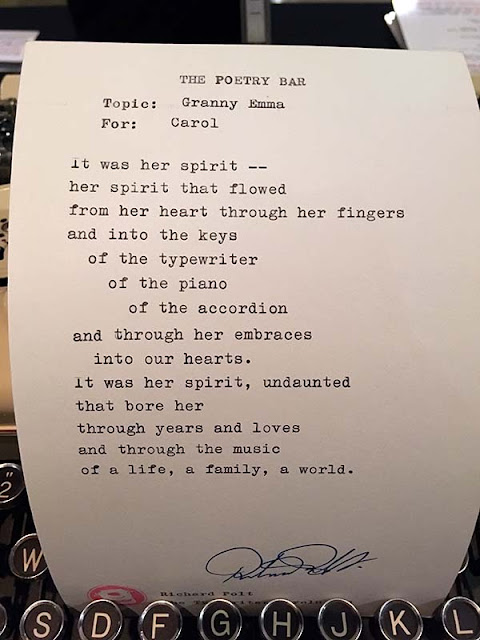 THE POETRY BAR
Topic: Granny Emma
For: Carol
It was her spirit --
her spirit that flowed
from her heart through her fingers
and into the keys
of the typewriter
of the piano
of the accordion
and through her embraces
into our hearts.
It was her spirit, undaunted
that bore her
through years and loves
and through the music
of a life, a family, a world.
Richard Polt
2"
W
S D F G H J K L